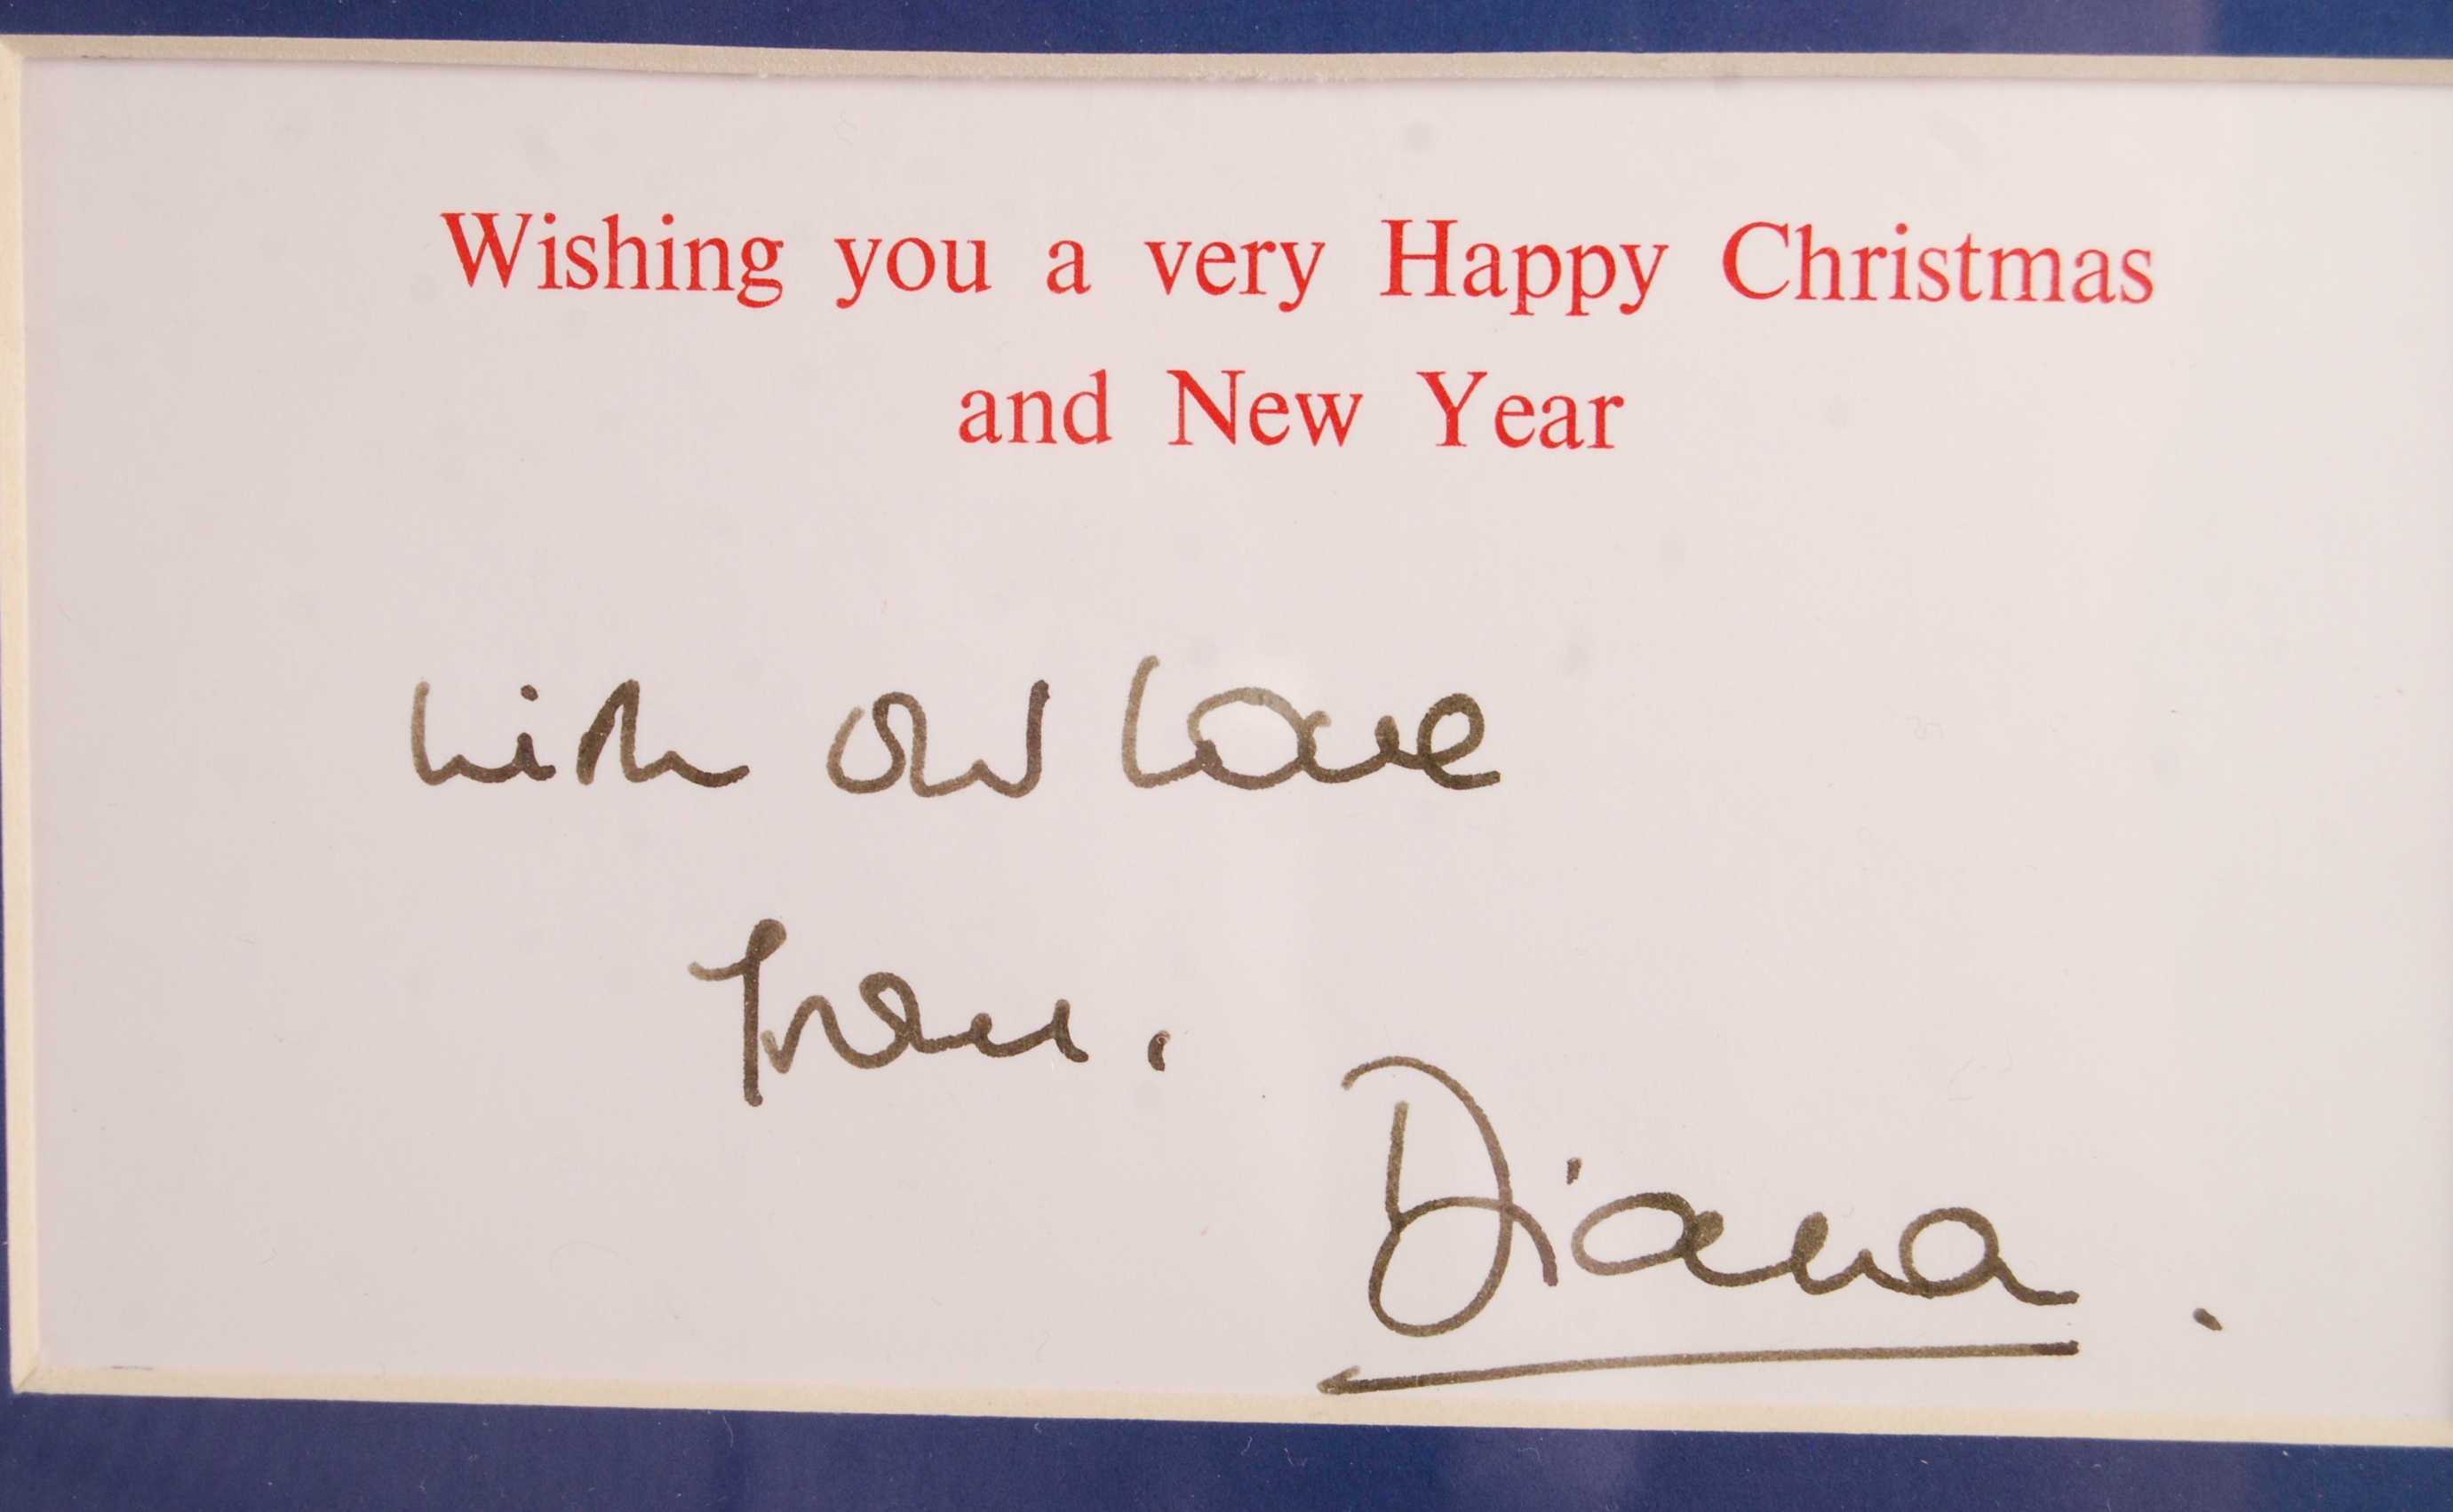 Wishing you a very Happy Christmas
and New Year
with our love
from.
Diana.